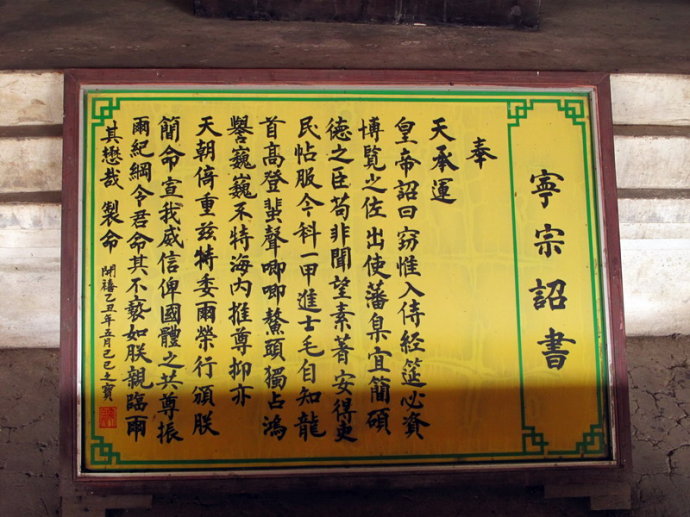 寧宗詔書
奉
天承運
皇帝詔曰窃惟入侍經筵必資
博覽之佐出使藩臬宜簡碩
德之臣苟非聞望素著安得吏
民帖服今科一甲進士毛自知龍
首高登蜚聲唧唧鰲頭獨占鴻
譽巍巍不特海内推尊抑亦
天朝倚重兹特委爾榮行頒朕
簡命宣我威信俾國體之共尊振
爾紀綱令君命其不褻如朕親臨爾
其懋哉 製命 開禧乙丑年五月己巳之寶